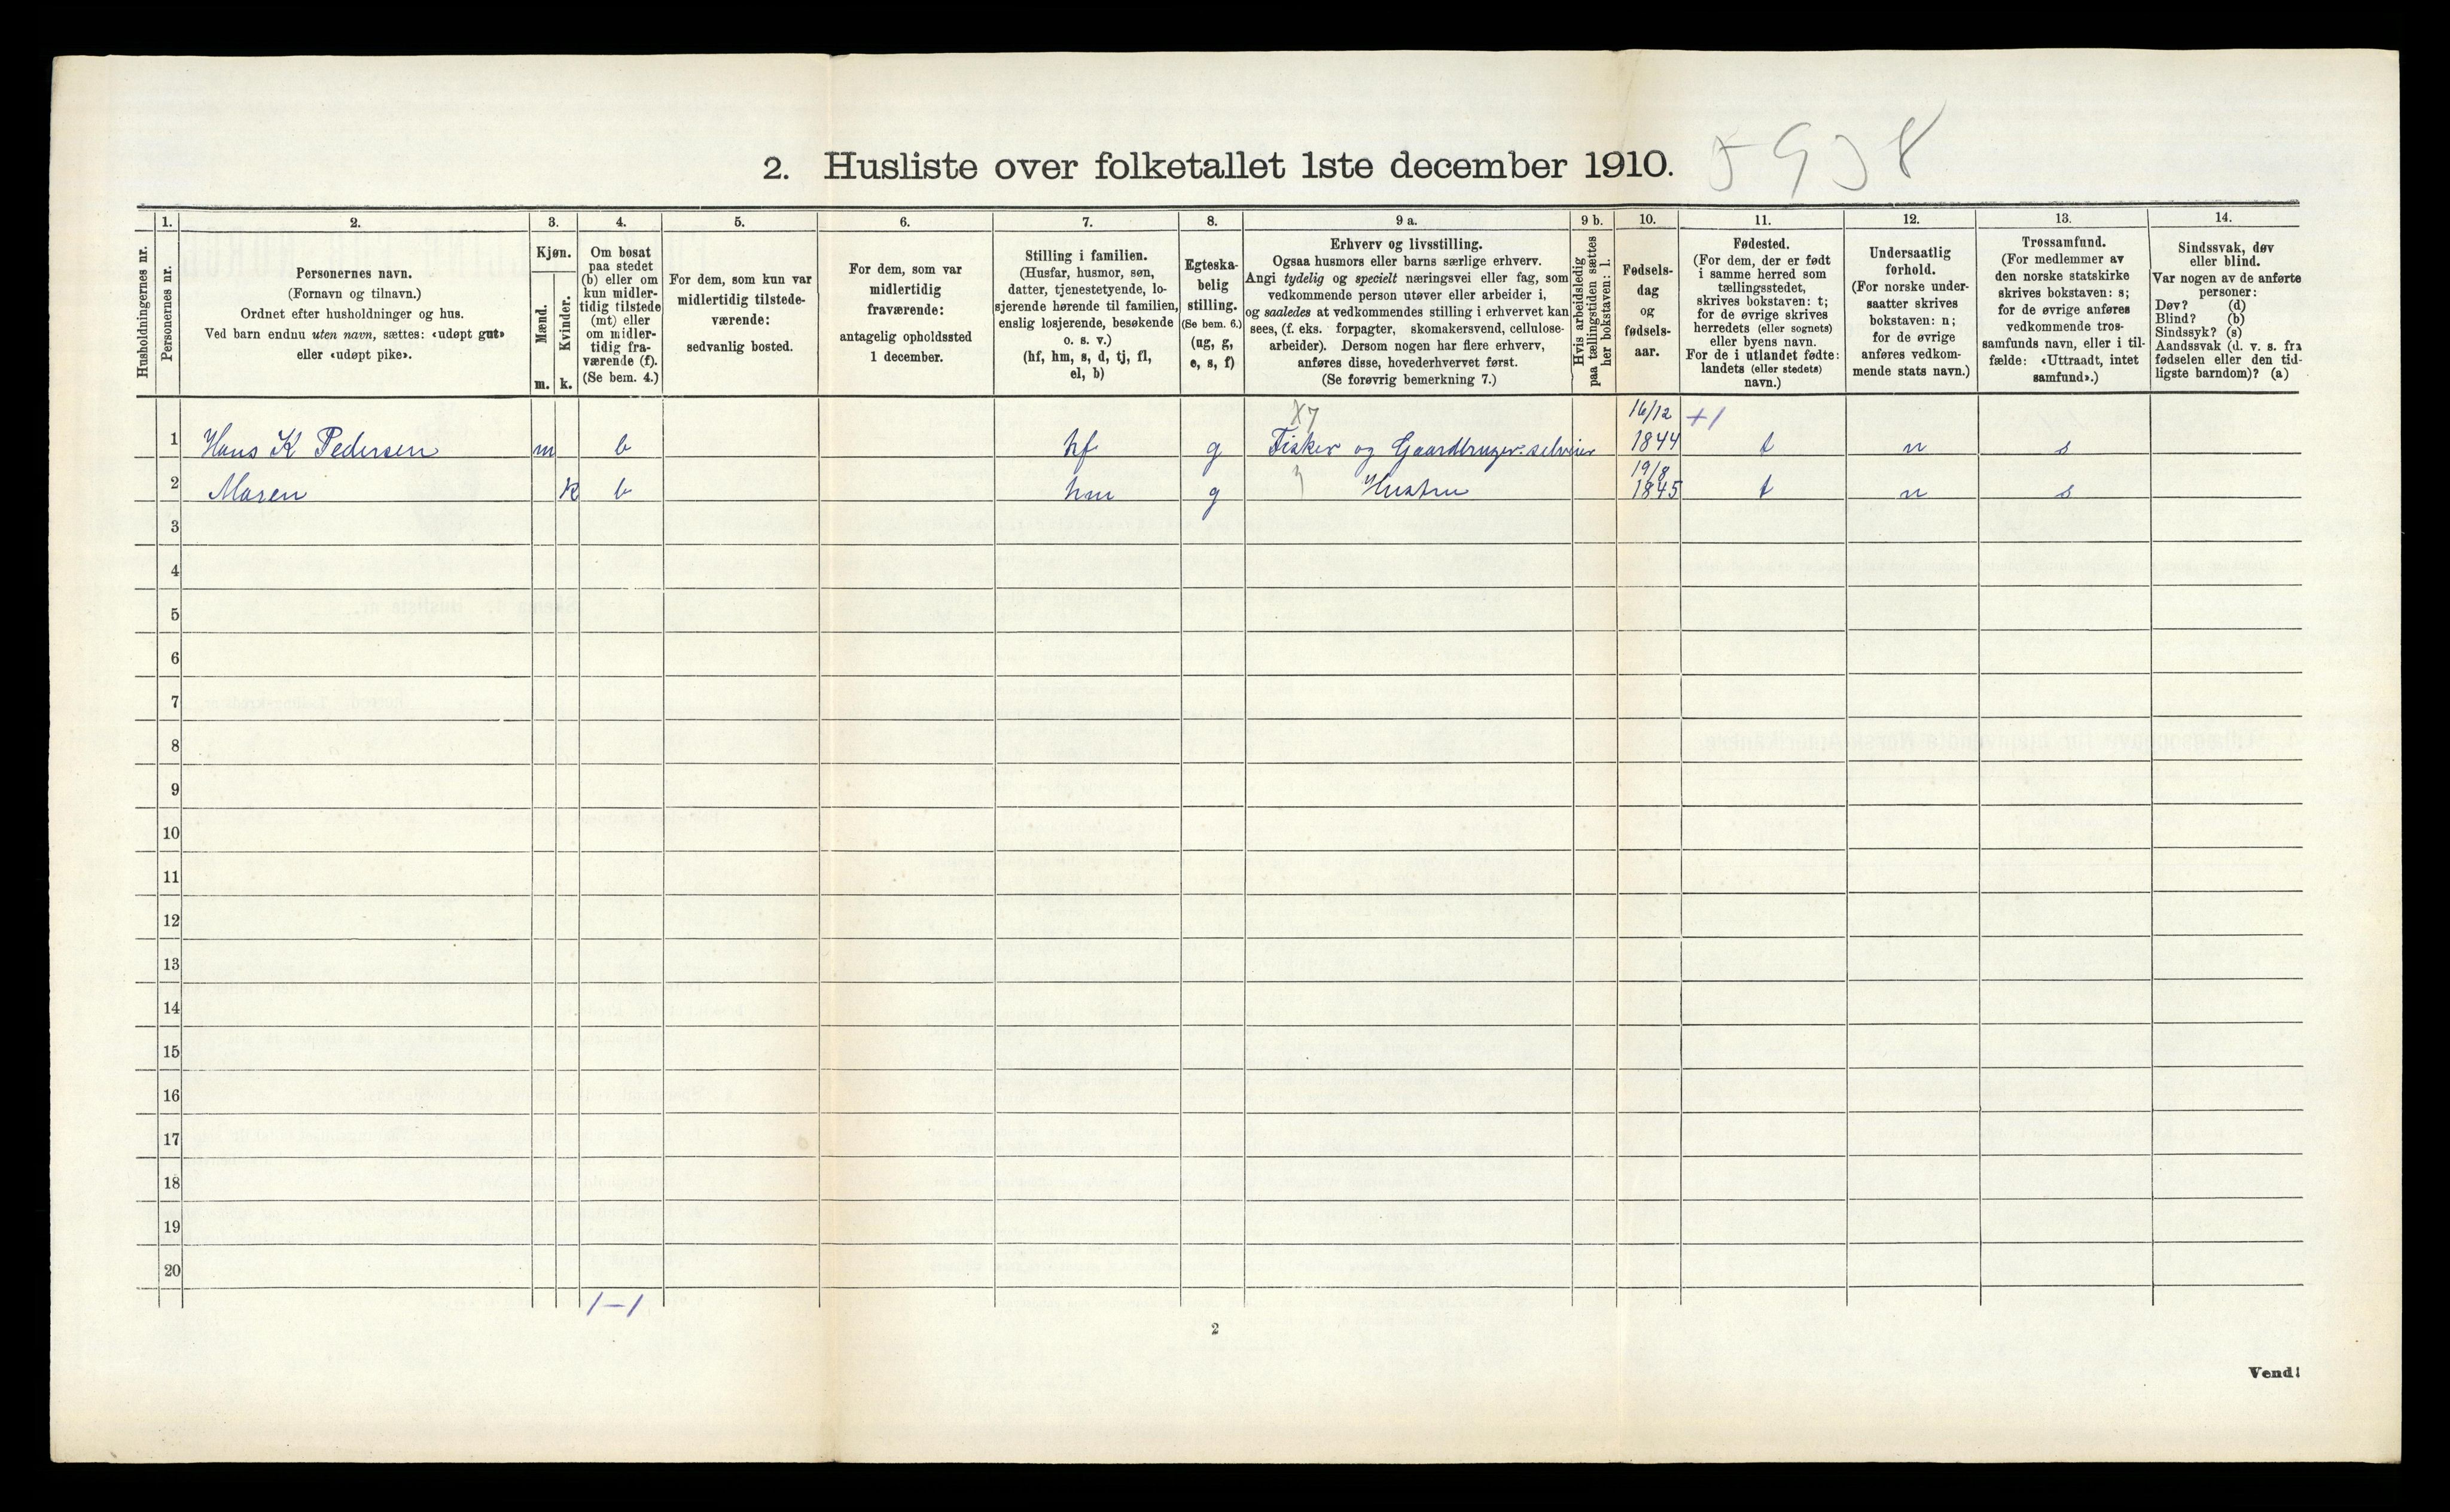 2. Husliste over folketallet 1ste december 1910. 5938
Husholdningernes nr.
1.
Personernes nr.
2.
Personernes navn.
(Fornavn og tilnavn.)
Ordnet efter husholdninger og hus.
Ved barn endnu uten navn, sættes: «udøpt gut»
eller «udøpt pike».
3.
Kjøn.
Mænd.
m.
Kvinder.
k.
4.
Om bosat
paa stedet
(b) eller om
kun midler-
tidig tilstede
(mt) eller
om midler-
tidig fra-
værende (f).
(Se bem. 4.)
5.
For dem, som kun var
midlertidig tilstede-
værende:
sedvanlig bosted.
6.
For dem, som var
midlertidig
fraværende:
antagelig opholdssted
1 december.
7.
Stilling i familien.
(Husfar, husmor, søn,
datter, tjenestetyende, lo-
sjerende hørende til familien,
enslig losjerende, besøkende
o. s. v.)
(hf, hm, s, d, tj, fl,
el, b)
8.
Egteska-
belig
stilling.
(Se bem. 6.)
(ug, g,
e, s, f)
9 a.
Erhverv og livsstilling.
Ogsaa husmors eller barns særlige erhverv.
Angi tydelig og specielt næringsvei eller fag, som
vedkommende person utøver eller arbeider i,
og saaledes at vedkommendes stilling i erhvervet kan
sees, (f. eks. forpagter, skomakersvend, cellulose-
arbeider). Dersom nogen har flere erhverv,
anføres disse, hovederhvervet først.
(Se forøvrig bemerkning 7.)
9 b.
Hvis arbeidsledig
paa tællingstiden sættes
her bokstaven: l.
10.
Fødsels-
dag
og
fødsels-
aar.
11.
Fødested.
(For dem, der er født
i samme herred som
tællingsstedet,
skrives bokstaven: t;
for de øvrige skrives
herredets (eller sognets)
eller byens navn.
For de i utlandet fødte:
landets (eller stedets)
navn.)
12.
Undersaatlig
forhold.
(For norske under-
saatter skrives
bokstaven: n;
for de øvrige
anføres vedkom-
mende stats navn.)
13.
Trossamfund.
(For medlemmer av
den norske statskirke
skrives bokstaven: s;
for de øvrige anføres
vedkommende tros-
samfunds navn, eller i til-
fælde: «Uttraadt, intet
samfund».)
14.
Sindssvak, døv
eller blind.
Var nogen av de anførte
personer:
Døv? (d)
Blind? (b)
Sindssyk? (s)
Aandssvak (d. v. s. fra
fødselen eller den tid-
ligste barndom)? (a)
X7 16/12 +1
1 Hans K Pedersen m b hf g Fisker og Gaardbruger: selveier 1844 t n s
19/8
2 Maren k b hm g Hustru 1845 t n s
3
4
5
6
7
8
9
10
11
12
13
14
15
16
17
18
19
20
1-1
2
Vend!